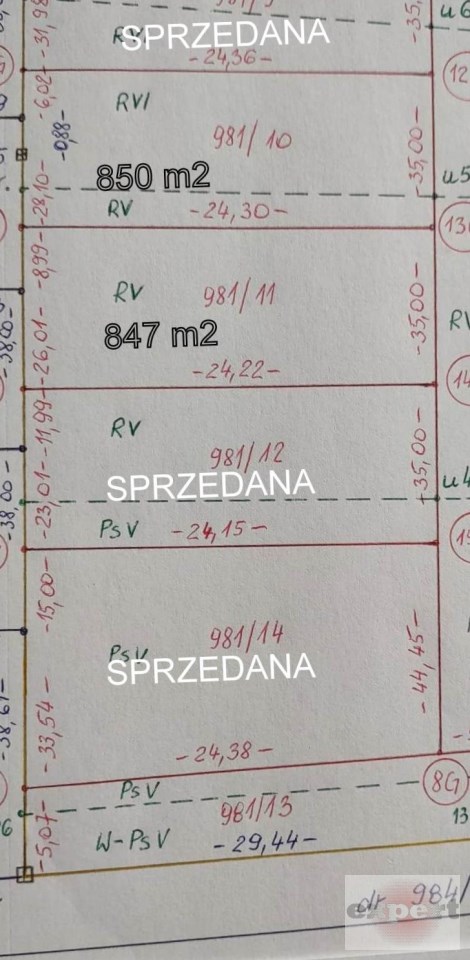 SPRZEDANA
-31,98
-24,36-
-6,02-
RVI
981/10
-0,88-
-35,00-
12
850 m2
u5
-28,10-
RV
-24,30-
13
-8,99-
RV
981/11
-35,00-
RV
847 m2
-38,00-
-26,01-
-24,22-
14
-11,99-
RV
981/12
-35,00-
SPRZEDANA
u4
-38,00-
-23,01-
PsV
-24,15-
-15,00-
981/14
PsV
SPRZEDANA
-44,45-
-38,61-
-33,54-
-24,38-
PsV
8G
981/13
13
-5,07-
W-PsV
-29,44-
dr 984/
expert